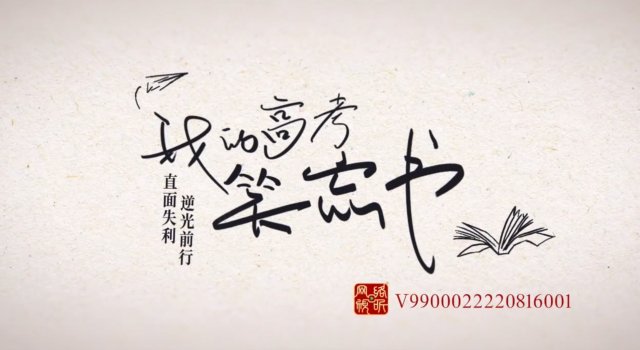 我的高考
笑忘书
直面失利
逆光前行
网络视听
V9900022220816001